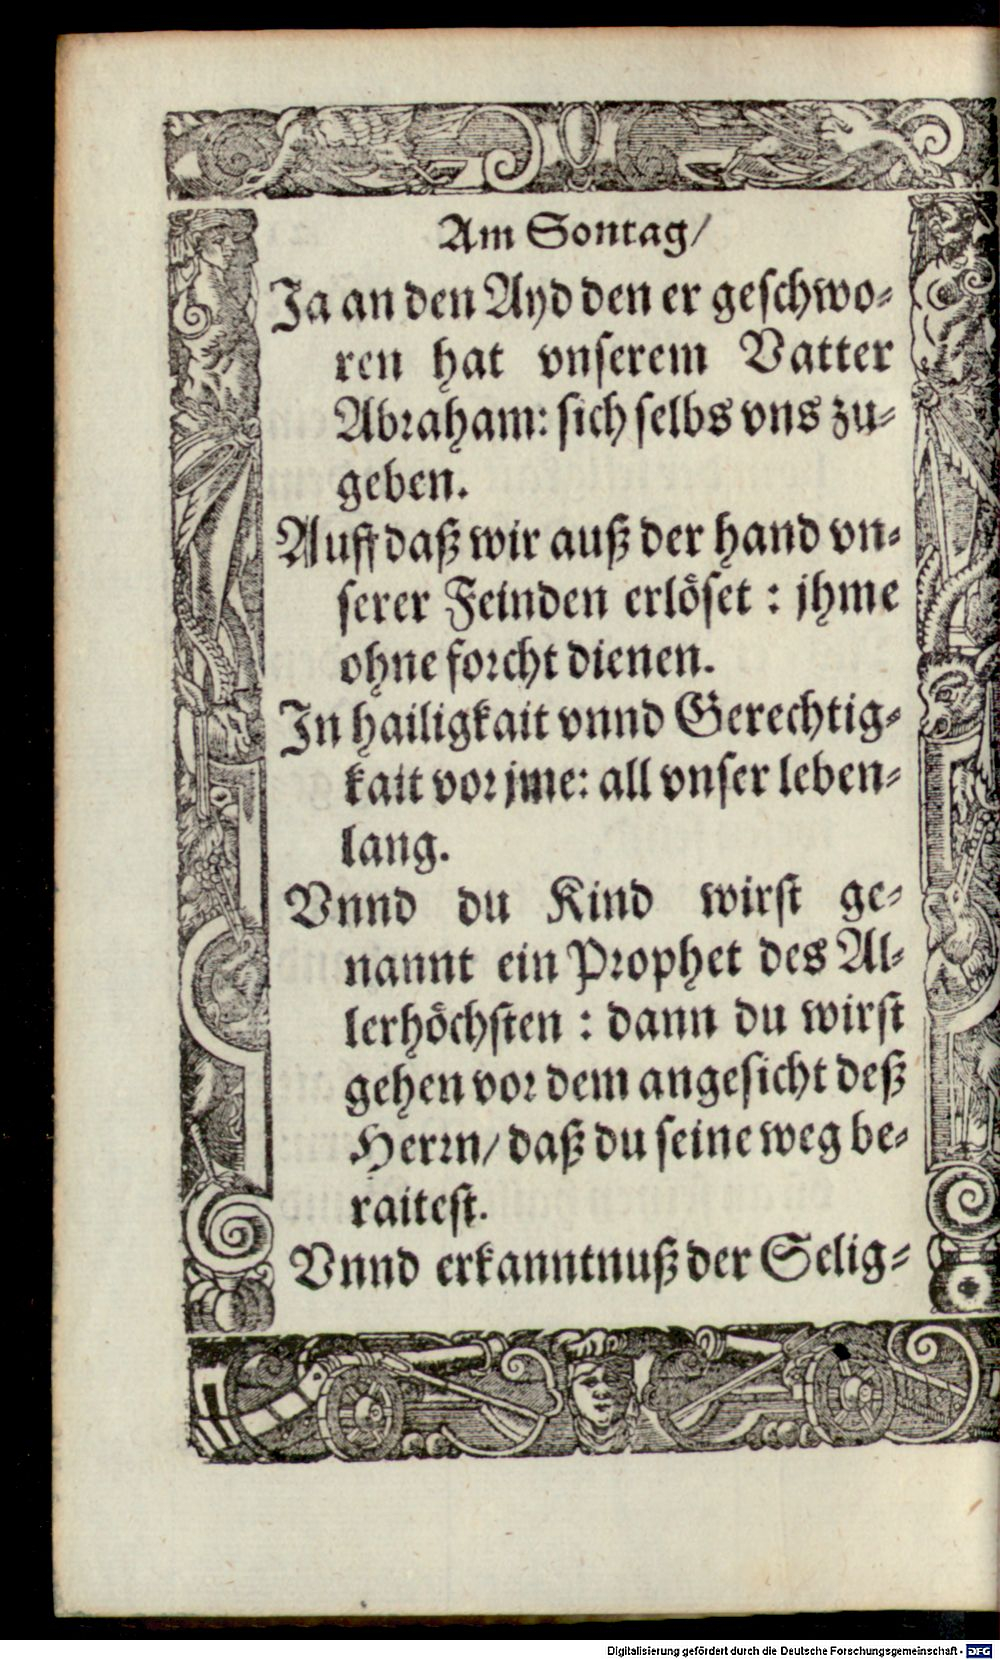 Am Sontag/
Ja an den Ayd den er geschwo⸗
ren hat vnserem Vatter
Abraham: sich selbs vns zu⸗
geben.
Auff daß wir auß der hand vn⸗
serer Feinden erlöset : jhme
ohne forcht dienen.
In hailigkait vnnd Gerechtig⸗
kait vor jme: all vnser leben⸗
lang.
Vnnd du Kind wirst ge⸗
nannt ein Prophet des Al⸗
lerhöchsten : dann du wirst
gehen vor dem angesicht deß
Herrn/ daß du seine weg be⸗
raitest.
Vnnd erkanntnuß der Selig⸗
Digitalisierung gefördert durch die Deutsche Forschungsgemeinschaft - DFG